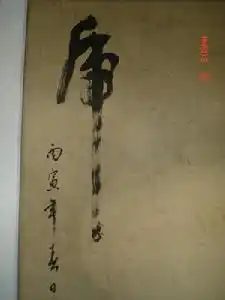 虎
丙寅年春日